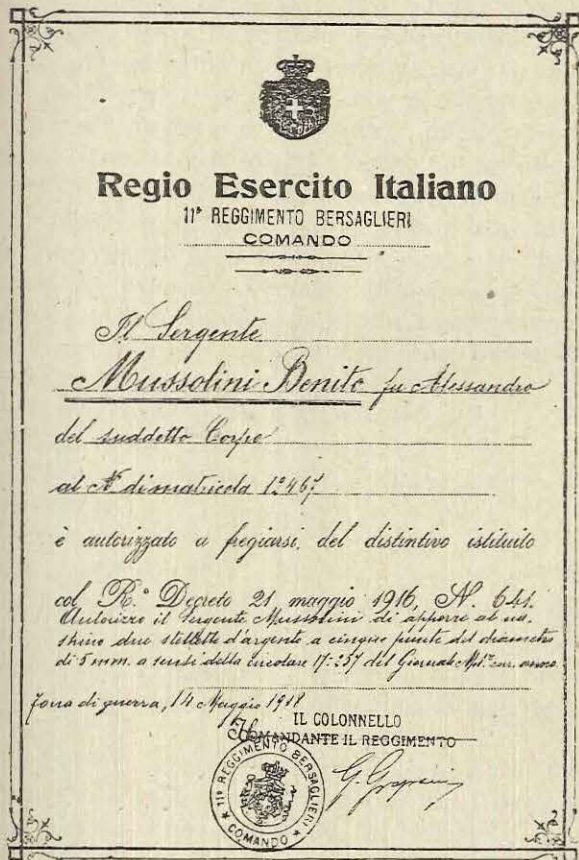 Regio Esercito Italiano
11° REGGIMENTO BERSAGLIERI
COMANDO
Il Sergente
Mussolini Benito fu Alessandro
del suddetto Corpo
al N° di matricola 12467
è autorizzato a fregiarsi, del distintivo istituito
col R.° Decreto 21 maggio 1916, N. 641.
Autorizzo il Sergente Mussolini di apporre al na-
strino due stellette d'argento a cinque punte del diametro
di 5 mm. a sensi della circolare 17:257 del Giornale Mil.re
Zona di guerra, 14 Maggio 1918
IL COLONNELLO
COMANDANTE IL REGGIMENTO
11° REGGIMENTO BERSAGLIERI
COMANDO